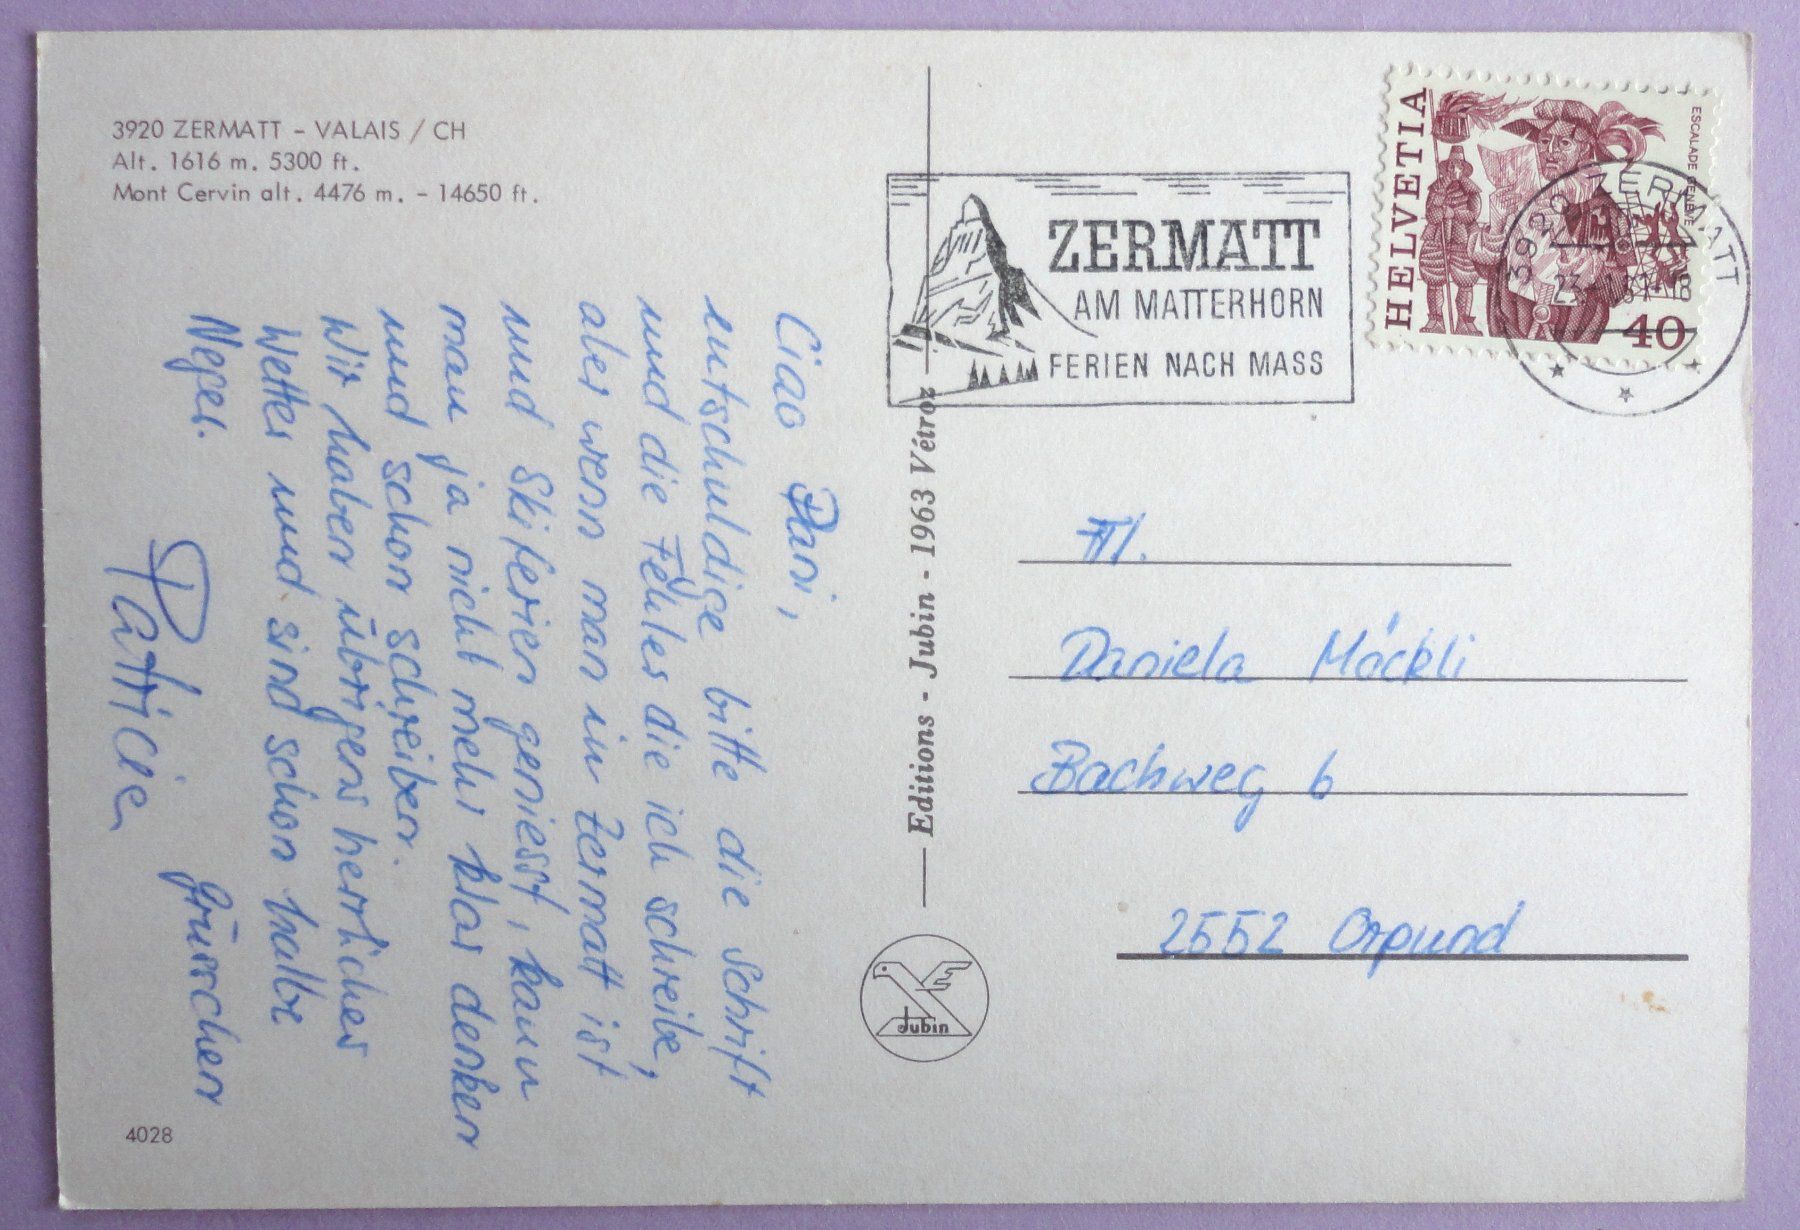 3920 ZERMATT - VALAIS / CH
Alt. 1616 m. 5300 ft.
Mont Cervin alt. 4476 m. - 14650 ft.
Ciao Dani,
entschuldige bitte die Schrift
und die Fehler die ich schreibe,
aber wenn man in Zermatt ist
und Skiferien geniesst, kann
man ja nicht mehr klar denken
und schon schreiben.
Wir haben übrigens herrliches
Wetter und sind schon halbe
Neger.
Grüsschen
Patricia
4028
Editions - Jubin - 1963 Vétroz
Jubin
ZERMATT
AM MATTERHORN
FERIEN NACH MASS
HELVETIA
ESCALADE GENÈVE
40
3920 ZERMATT
Frl.
Daniela Möckli
Bachweg 6
2552 Orpund